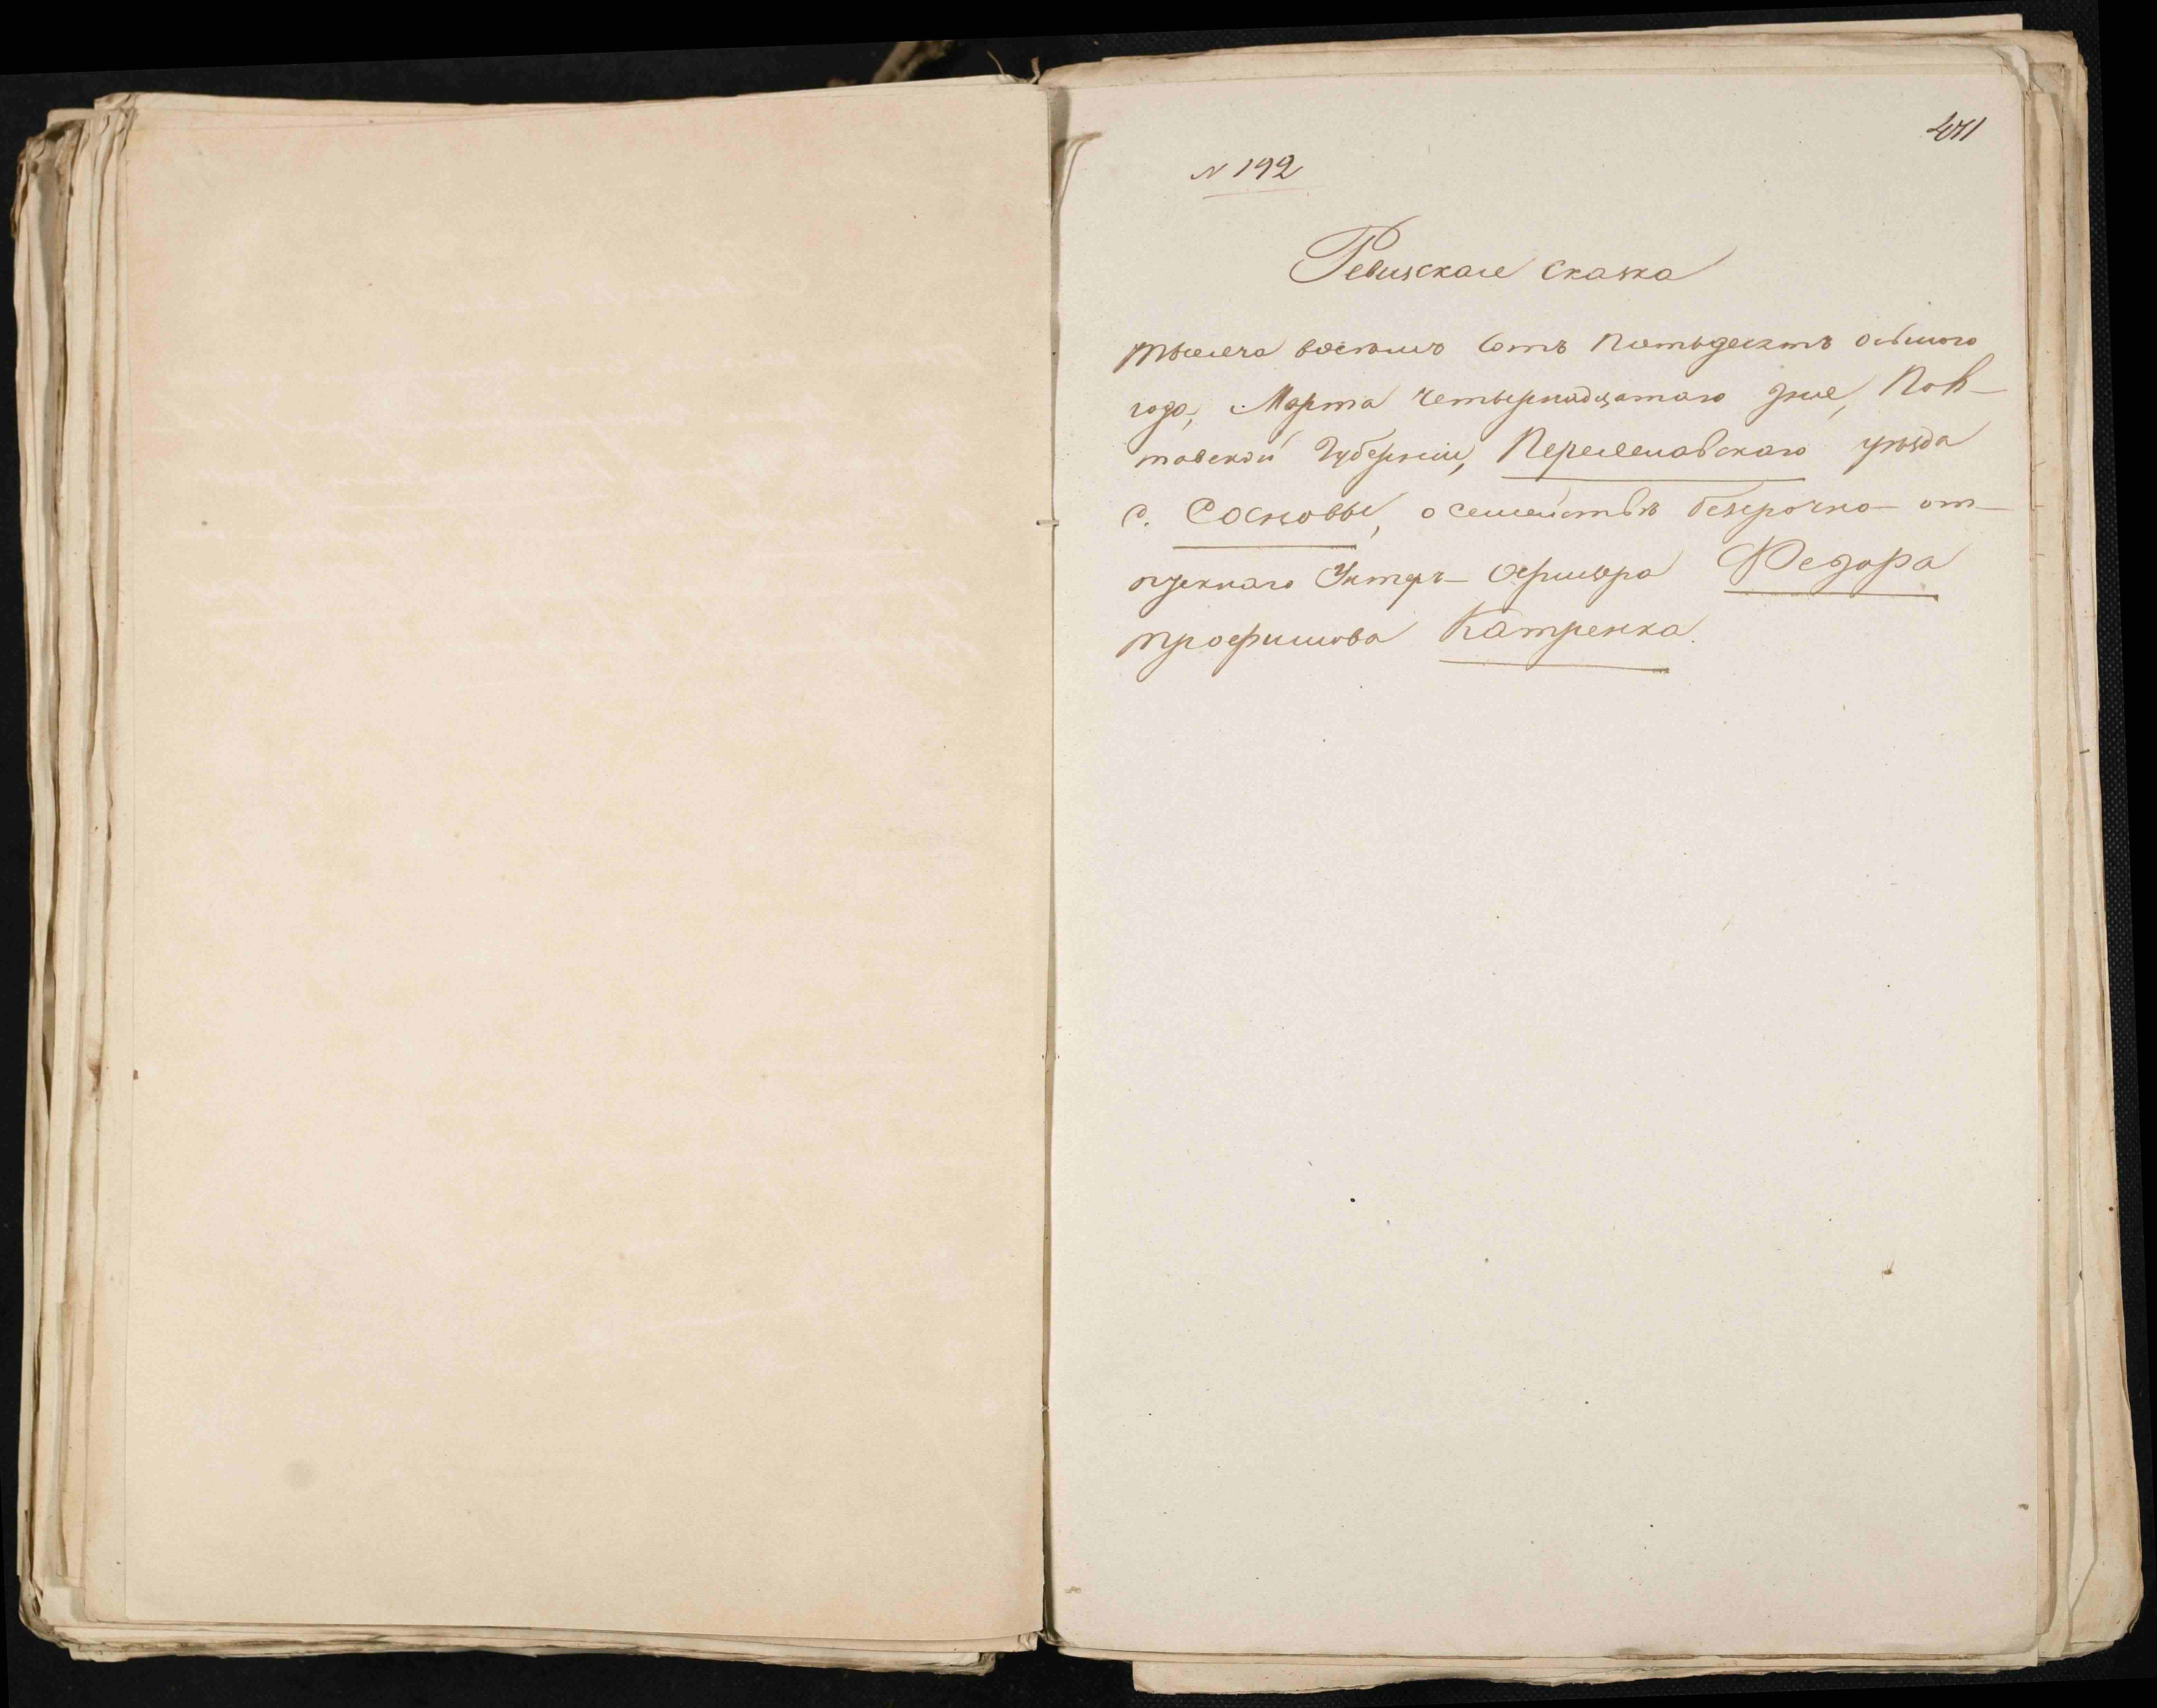 471
N 192
Ревизская сказка
тысяча восемь сотъ пятьдесятъ осьмого
года, Марта четырнадцатаго дня, Пол-
тавской Губерніи, Переяславскаго уѣзда
с. Сосновы, о семействѣ безсрочно-от-
пускнаго Унтеръ-Офицера Федора
Трофимова Катренка.